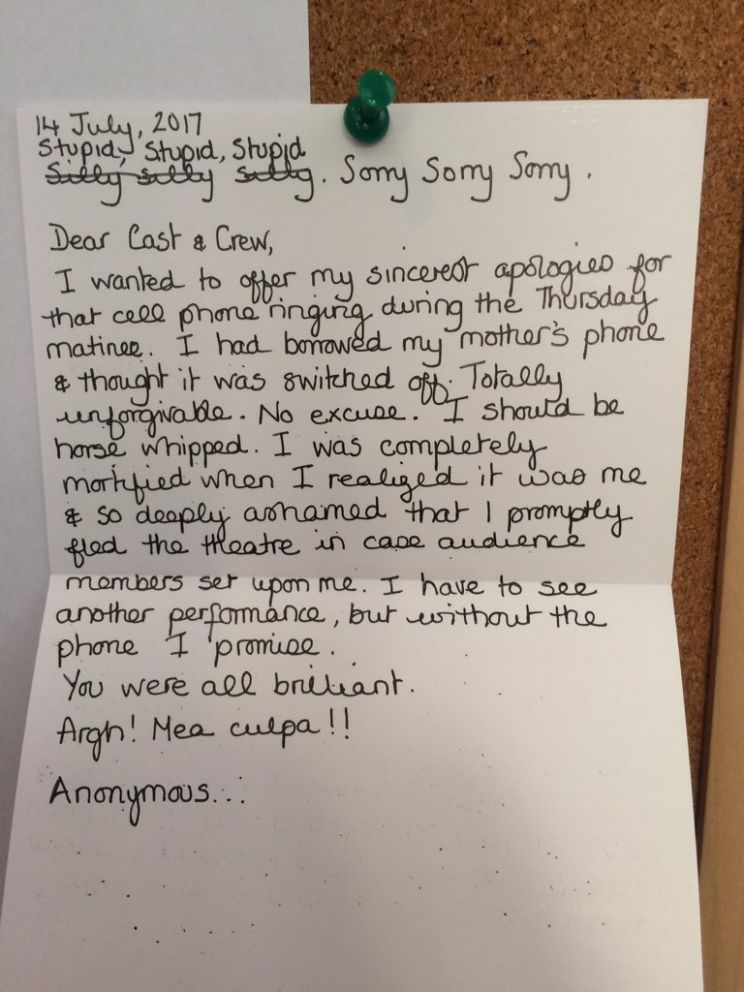 14 July, 2017
Stupid, Stupid, Stupid
Silly silly silly. Sorry Sorry Sorry.
Dear Cast & Crew,
I wanted to offer my sincerest apologies for
that cell phone ringing during the Thursday
matinee. I had borrowed my mother's phone
& thought it was switched off. Totally
unforgivable. No excuse. I should be
horse whipped. I was completely
mortified when I realized it was me
& so deeply ashamed that I promptly
fled the theatre in case audience
members set upon me. I have to see
another performance, but without the
phone I promise.
You were all brilliant.
Argh! Mea culpa!!
Anonymous...